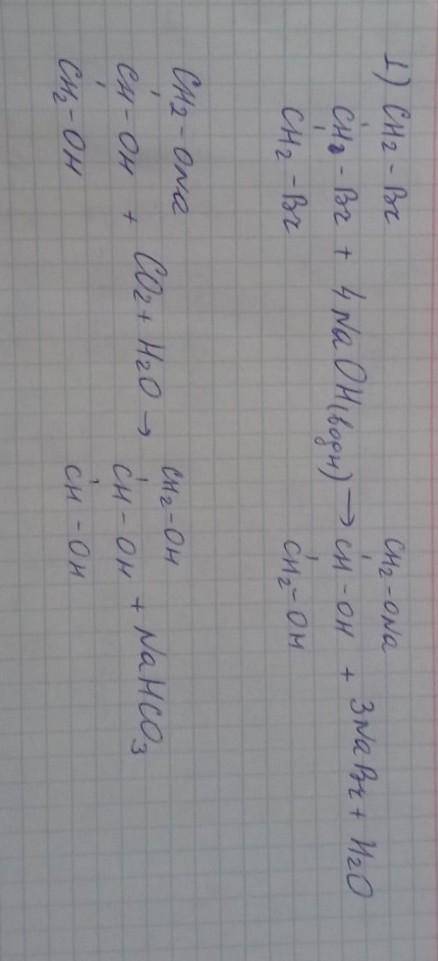 1) CH2-Br
CH2-Br + 4NaOH(водн) → CH-OH + 3NaBr + H2O
CH2-Br
CH2-ONa
CH2-OH
CH2-ONa
CH-OH + CO2 + H2O → CH-OH + NaHCO3
CH2-OH
CH2-OH
CH-OH